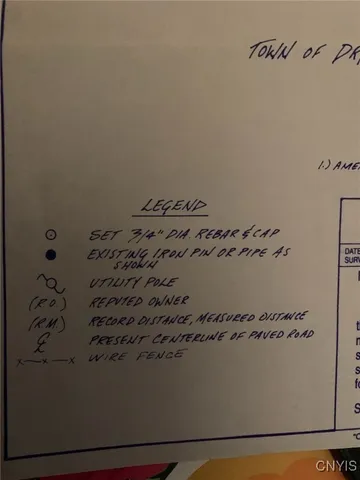 TOWN OF
1.)
LEGEND
SET 3/4" DIA. REBAR & CAP
EXISTING IRON PIN OR PIPE AS
SHOWN
UTILITY POLE
(R.O.) REPUTED OWNER
(R.M.) RECORD DISTANCE, MEASURED DISTANCE
℄ PRESENT CENTERLINE OF PAVED ROAD
x—x—x WIRE FENCE
DATE
SURV
CNYIS